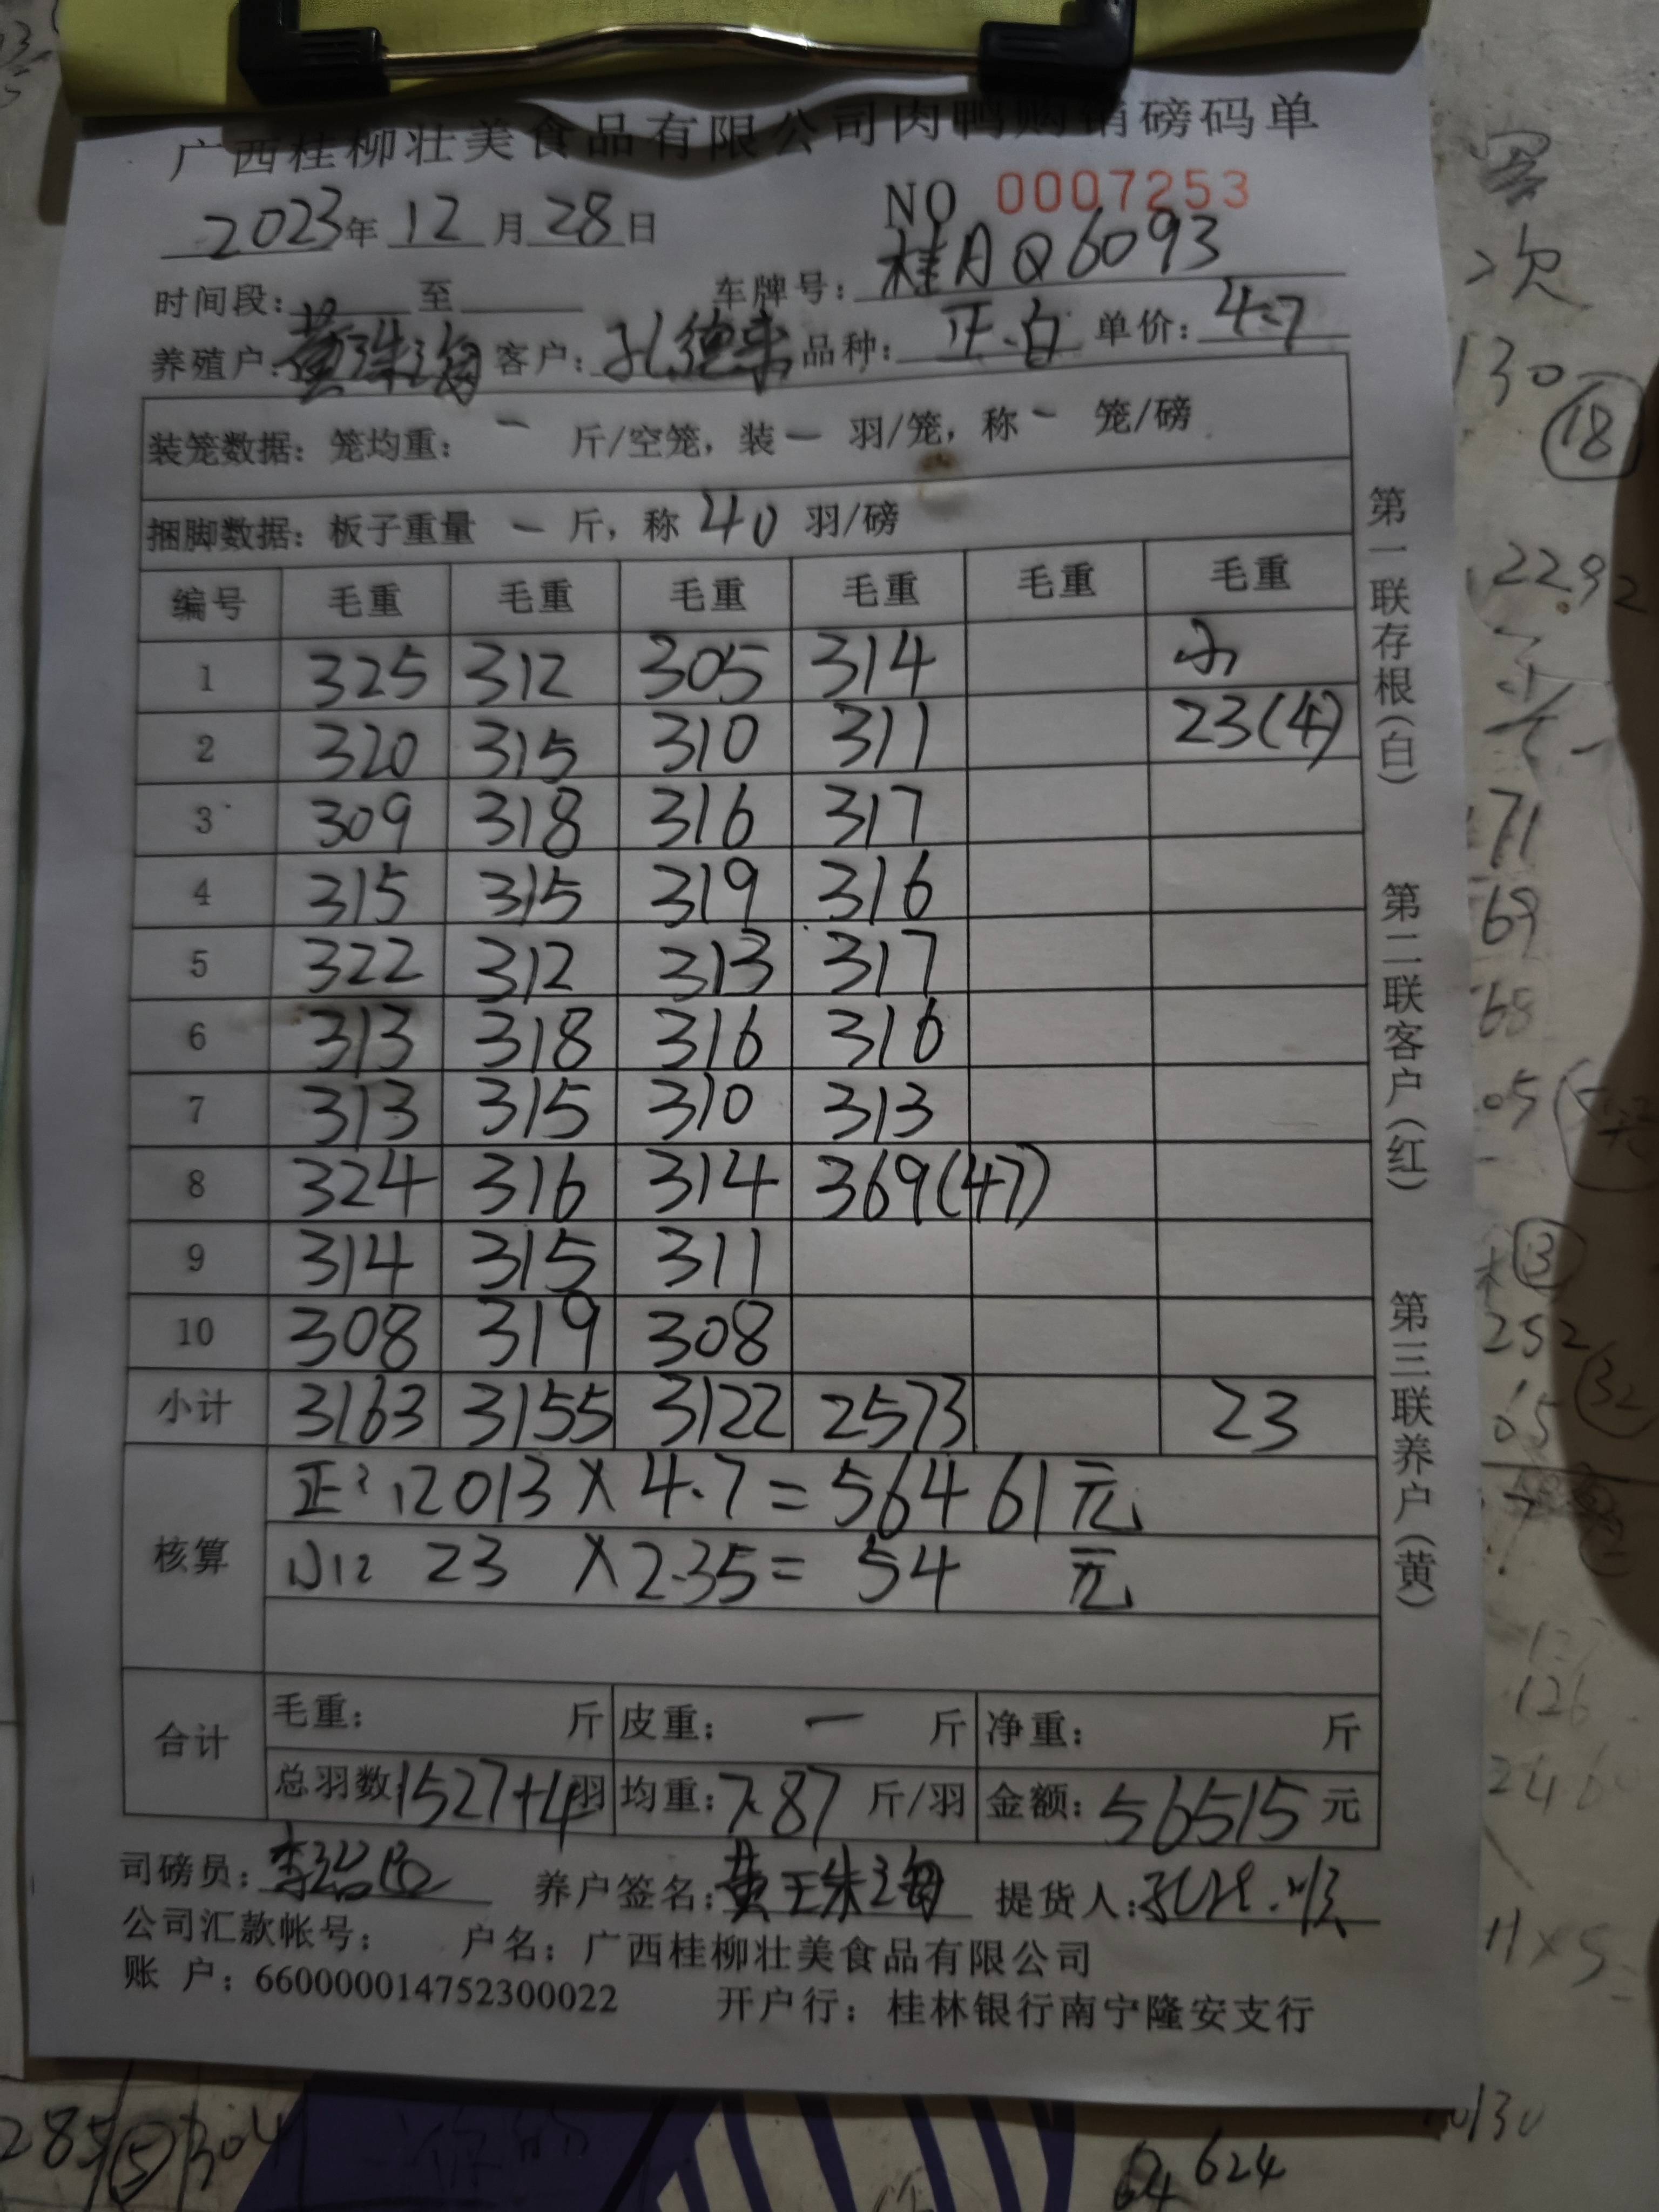 广西桂柳壮美食品有限公司肉鸭购销磅码单
NO 0007253
2023年 12 月 28 日
时间段: 至 车牌号: 桂AQ6093
养殖户: 黄珠海 客户: 孔德来 品种: 正.白 单价: 4.7
装笼数据: 笼均重: 一 斤/空笼, 装 一 羽/笼, 称 一 笼/磅
捆脚数据: 板子重量 一 斤, 称 40 羽/磅
编号 毛重 毛重 毛重 毛重 毛重 毛重
1 325 312 305 314 小
2 320 315 310 311 23(4)
3 309 318 316 317
4 315 315 319 316
5 322 312 313 317
6 313 318 316 316
7 313 315 310 313
8 324 316 314 369(47)
9 314 315 311
10 308 319 308
小计 3163 3155 3122 2573 23
核算 正: 12013 × 4.7 = 56461元
小: 23 × 2.35 = 54 元
合计 毛重: 斤 皮重: 一 斤 净重: 斤
总羽数: 1527+4羽 均重: 7.87 斤/羽 金额: 56515 元
司磅员: 养户签名: 黄珠海 提货人:
公司汇款帐号: 户名: 广西桂柳壮美食品有限公司
账 户: 660000014752300022 开户行: 桂林银行南宁隆安支行
第一联存根(白) 第二联客户(红) 第三联养户(黄)
次
130
18
71
69
68
05
3
252
32
65
126
11×5
285 5 304
624